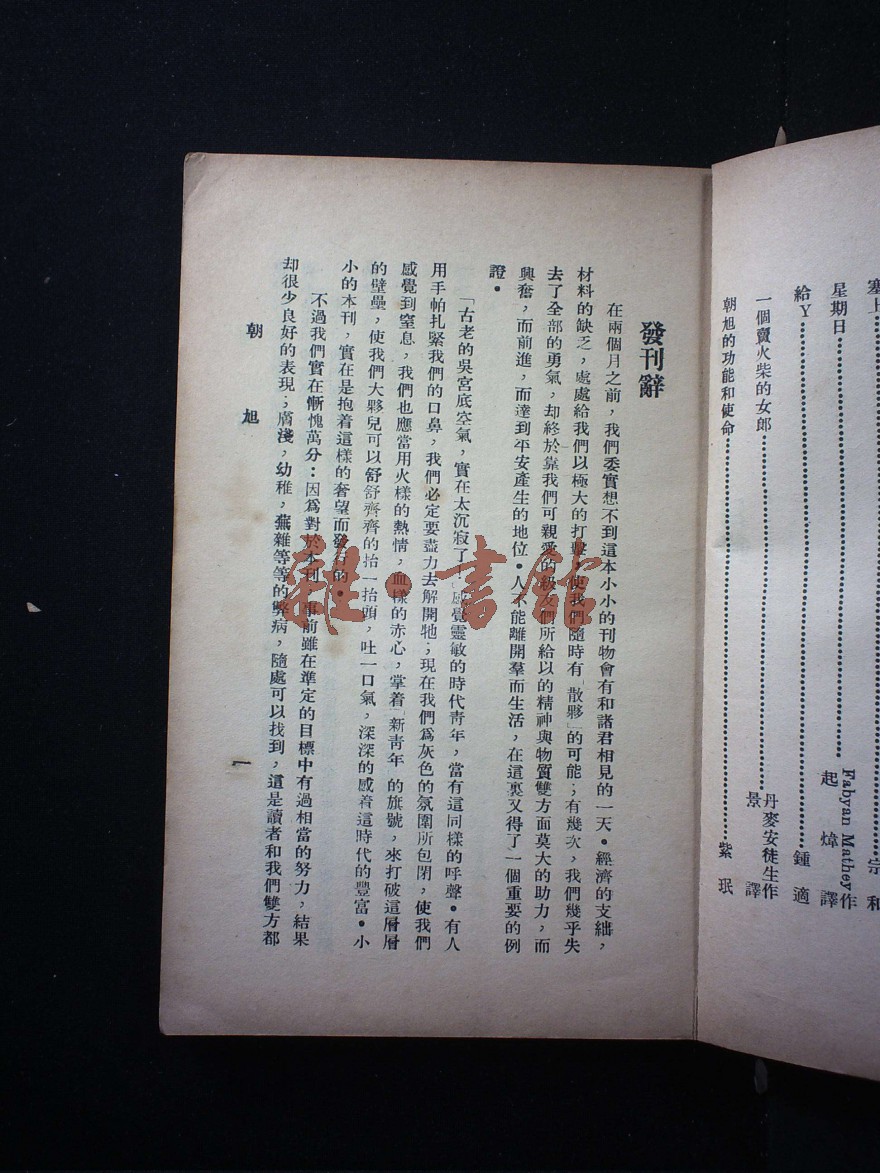 塞上……宗和
星期日……Fabyan Mathey作
起煒譯
給Y……鍾適
一個賣火柴的女郎……丹麥安徒生作
景譯
朝旭的功能和使命……紫珉
發刊辭
在兩個月之前，我們委實想不到這本小小的刊物會有和諸君相見的一天。經濟的支絀，
材料的缺乏，處處給我們以極大的打擊，使我們隨時有「散夥」的可能；有幾次，我們幾乎失
去了全部的勇氣，却終於靠我們可親愛的級友們所給以的精神與物質雙方面莫大的助力，而
興奮，而前進，而達到平安產生的地位。人不能離開羣而生活，在這裏又得了一個重要的例
證。
「古老的吳宮底空氣，實在太沉寂了！」感覺靈敏的時代靑年，當有這同樣的呼聲。有人
用手帕扎緊我們的口鼻，我們必定要盡力去解開牠；現在我們爲灰色的氛圍所包閉，使我們
感覺到窒息，我們也應當用火樣的熱情，血樣的赤心，掌着「新靑年 的旗號，來打破這層層
的壁壘，使我們大夥兒可以舒舒齊齊的抬一抬頭，吐一口氣，深深的感着這時代的豐富。小
小的本刊，實在是抱着這樣的奢望而發刊的。
不過我們實在慚愧萬分：因爲對於本刊 事前雖在準定的目標中有過相當的努力，結果
却很少良好的表現；膚淺，幼稚，蕪雜等等的弊病，隨處可以找到，這是讀者和我們雙方都
朝旭
一
雜·書館